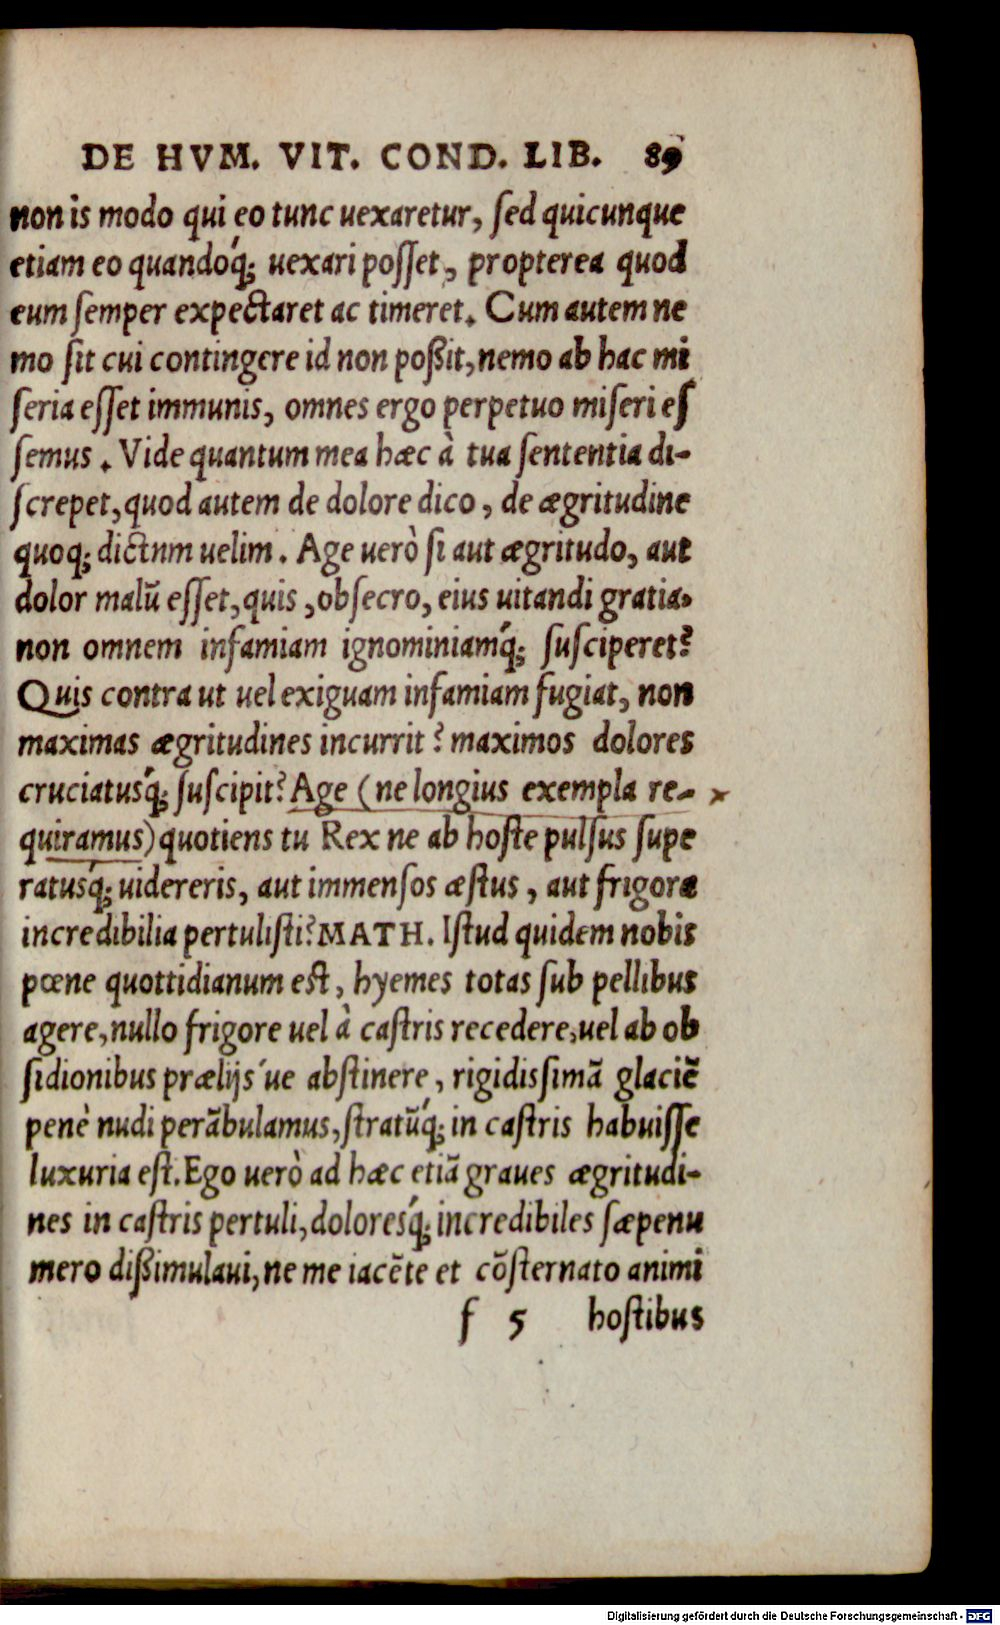 DE HVM. VIT. COND. LIB. 89
non is modo qui eo tunc uexaretur, ſed quicunque
etiam eo quandoq́; uexari poſſet, propterea quod
eum ſemper expectaret ac timeret. Cum autem ne
mo ſit cui contingere id non poßit, nemo ab hac mi
ſeria eſſet immunis, omnes ergo perpetuo miſeri eſ
ſemus. Vide quantum mea hæc à tua ſententia di-
ſcrepet, quod autem de dolore dico, de ægritudine
quoq; dictnm uelim. Age uerò ſi aut ægritudo, aut
dolor malũ eſſet, quis, obſecro, eius uitandi gratia,
non omnem infamiam ignominiamq́; ſuſciperet?
Quis contra ut uel exiguam infamiam fugiat, non
maximas ægritudines incurrit? maximos dolores
cruciatusq́; ſuſcipit? Age (ne longius exempla re-
quiramus) quotiens tu Rex ne ab hoſte pulſus ſupe
ratusq́; uidereris, aut immenſos æſtus, aut frigora
incredibilia pertuliſti? MATH. Iſtud quidem nobis
pœne quottidianum eſt, hyemes totas ſub pellibus
agere, nullo frigore uel à caſtris recedere, uel ab ob
ſidionibus prælijs´ue abſtinere, rigidisſimã glaciẽ
penè nudi perãbulamus, ſtratũq́; in caſtris habuiſſe
luxuria eſt. Ego uerò ad hæc etiã graues ægritudi-
nes in caſtris pertuli, doloresq́; incredibiles ſæpenu
mero dißimulaui, ne me iacẽte et cõſternato animi
f 5 hoſtibus
Digitalisierung gefördert durch die Deutsche Forschungsgemeinschaft - DFG